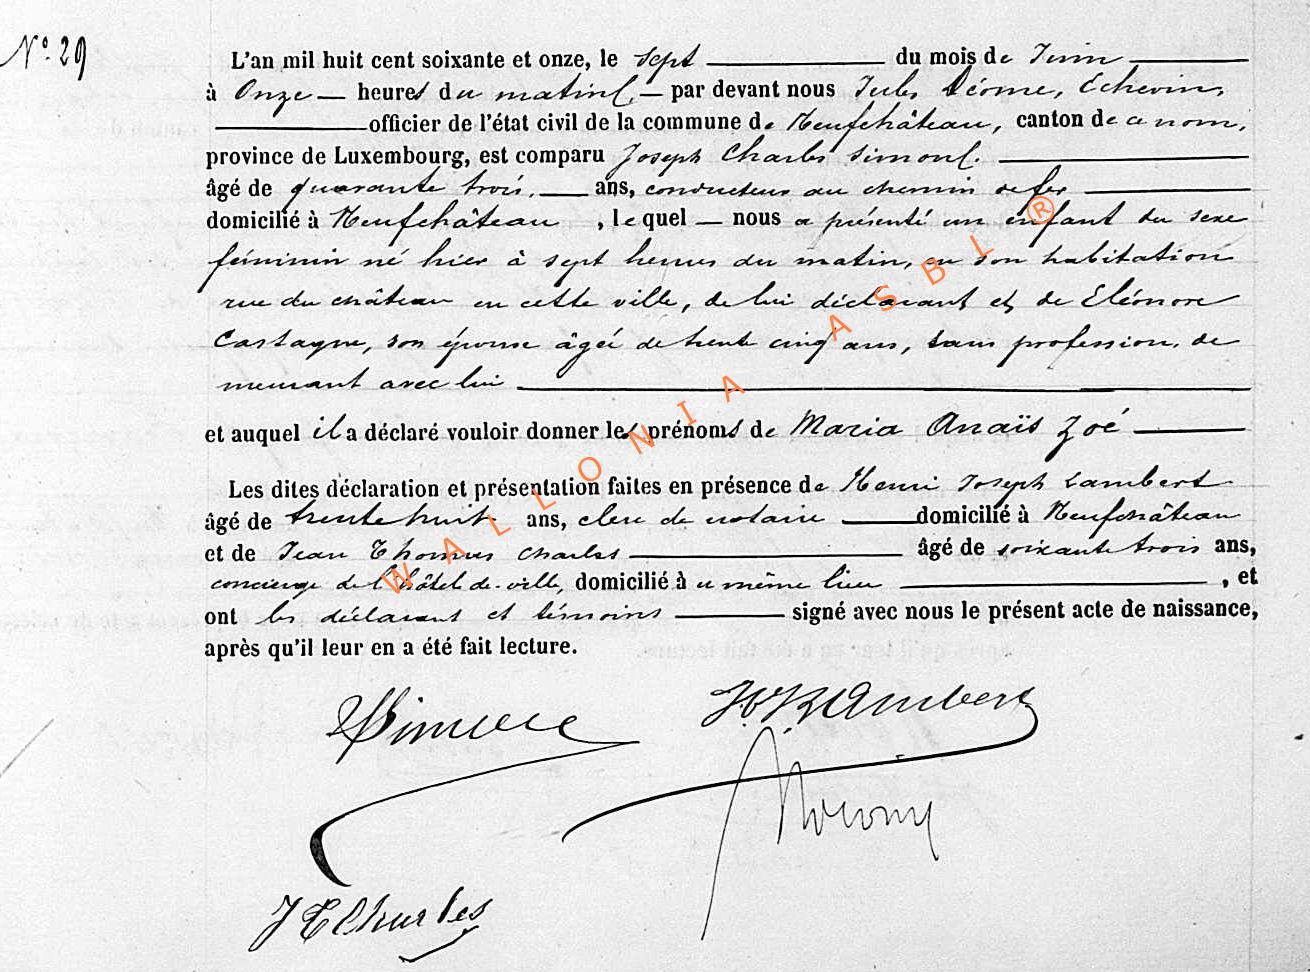 N° 29
L'an mil huit cent soixante et onze, le sept du mois de Juin
à Onze heures du matin, par devant nous Jules Déome, Echevin,
officier de l'état civil de la commune de Neufchâteau, canton de ce nom,
province de Luxembourg, est comparu Joseph Charles Simon
âgé de quarante trois, ans, conducteur au chemin de fer
domicilié à Neufchâteau, lequel nous a présenté un enfant du sexe
féminin né hier à sept heures du matin, en son habitation
rue du château en cette ville, de lui déclarant et de Eléonore
Castagne, son épouse âgée de trente cinq ans, sans profession, de
meurant avec lui
et auquel il a déclaré vouloir donner les prénoms de Maria Anaïs Zoé
Les dites déclaration et présentation faites en présence de Henri Joseph Lambert
âgé de trente huit ans, clerc de notaire domicilié à Neufchâteau
et de Jean Thomas Charles âgé de soixante trois ans,
concierge de l'hôtel-de-ville, domicilié à même lieu, et
ont les déclarant et témoins signé avec nous le présent acte de naissance,
après qu'il leur en a été fait lecture.
Lambert
J T Charles
WALLONIA ASBL ®